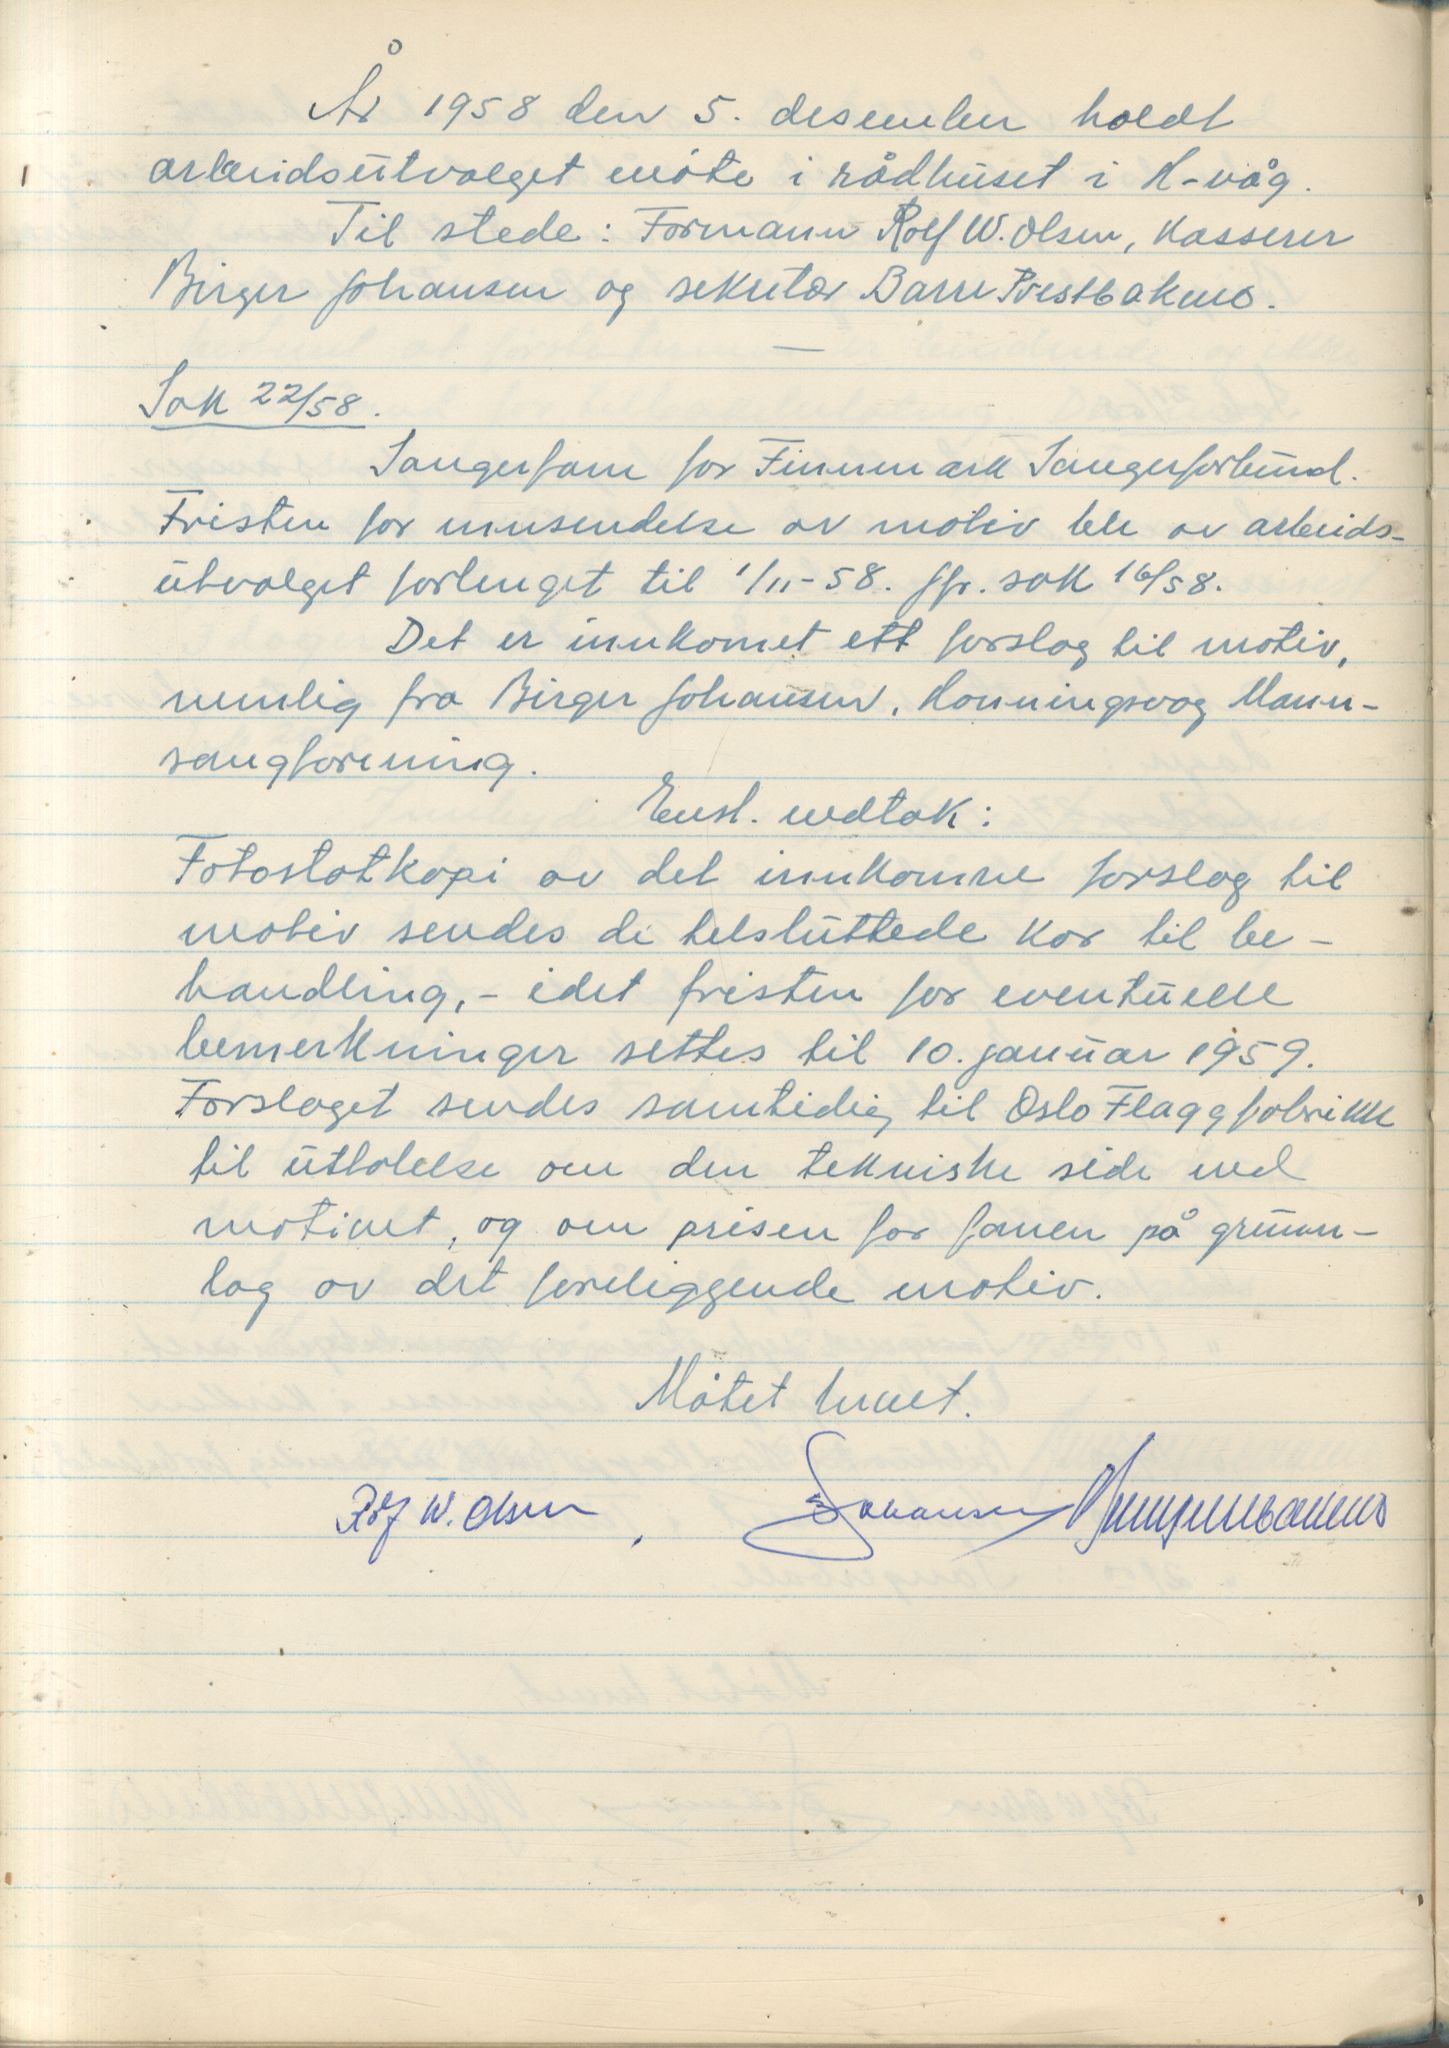 År 1958 den 5. desember holdt
arbeidsutvalget møte i rådhuset i H-våg.
Til stede: Formann Rolf W. Olsen, Kasserer
Birger Johansen og sekretær Barre Prestbakmo.
—
Sak 22/58.
Sangerfane for Finnmark Sangerforbund.
Fristen for innsendelse av motiv ble av arbeids-
utvalget forlenget til 1/11-58. Jfr. sak 16/58.
Det er innkomet ett forslag til motiv,
nemlig fra Birger Johansen, Honningsvåg Mann-
sangforening.
Enst. vedtak:
Fotostatkopi av det innkomne forslag til
motiv sendes de tilsluttede kor til be-
handling, - idet fristen for eventuelle
bemerkninger settes til 10. januar 1959.
Forslaget sendes samtidig til Oslo Flaggfabrikk
til uttalelse om den tekniske side ved
motivet, og om prisen for fanen på grunn-
lag av det foreliggende motiv.
Møtet hevet.
Rolf W. Olsen BJohansen